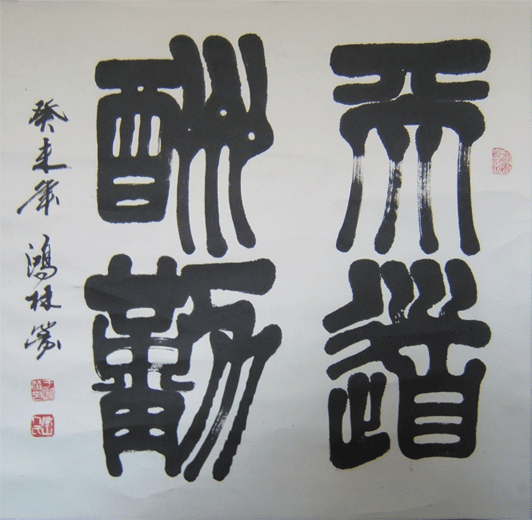 天道
酬勤
癸未年 鸿林篆